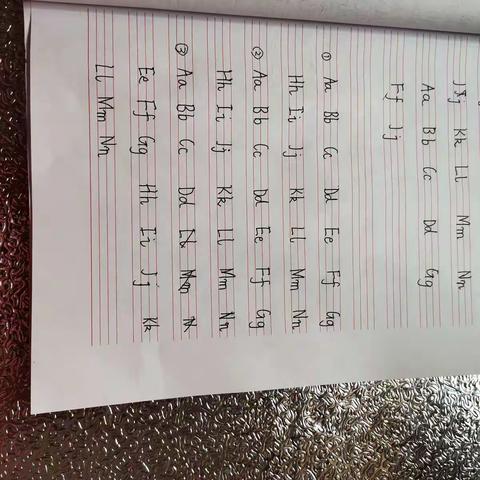 Jj Kk Ll Mm Nn
Aa Bb Cc Dd Gg
Ff Jj
① Aa Bb Cc Dd Ee Ff Gg
Hh Ii Jj Kk Ll Mm Nn
② Aa Bb Cc Dd Ee Ff Gg
Hh Ii Jj Kk Ll Mm Nn
③ Aa Bb Cc Dd
Ee Ff Gg Hh Ii Jj Kk
Ll Mm Nn